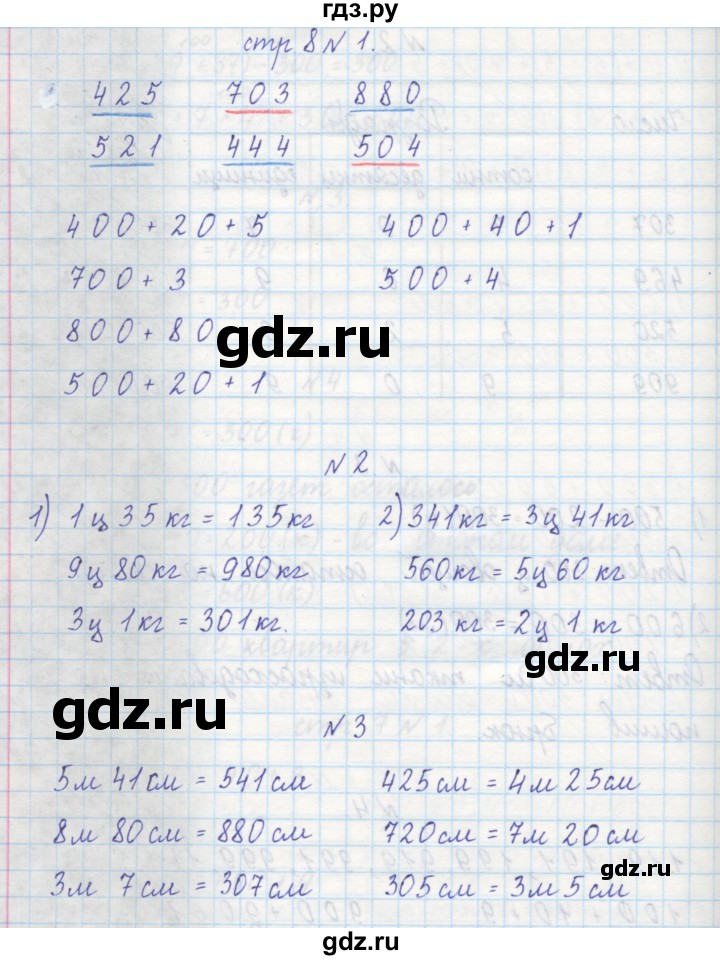 гдз.ру
стр 8 № 1.
425 703 880
521 444 504
400 + 20 + 5 400 + 40 + 1
700 + 3 500 + 4
800 + 80
gdz.ru
500 + 20 + 1
№ 2
1) 1ц 35кг = 135кг 2) 341кг = 3ц 41кг
9ц 80кг = 980кг 560кг = 5ц 60кг
3ц 1кг = 301кг. 203кг = 2ц 1 кг
gdz.ru
gdz.ru
№ 3
5м 41см = 541см 425см = 4м 25см
8м 80см = 880см 720см = 7м 20см
3м 7см = 307см 305см = 3м 5см
gdz.ru
gdz.ru